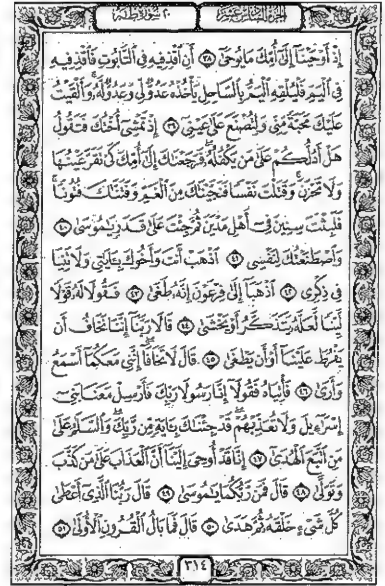 الجزء السادس عشر
٢٠ سورة طه
إِذْ أَوْحَيْنَا إِلَىٰ أُمِّكَ مَا يُوحَىٰ ٣٨ أَنِ اقْذِفِيهِ فِي التَّابُوتِ فَاقْذِفِيهِ
فِي الْيَمِّ فَلْيُلْقِهِ الْيَمُّ بِالسَّاحِلِ يَأْخُذْهُ عَدُوٌّ لِّي وَعَدُوٌّ لَّهُ وَأَلْقَيْتُ
عَلَيْكَ مَحَبَّةً مِّنِّي وَلِتُصْنَعَ عَلَىٰ عَيْنِي ٣٩ إِذْ تَمْشِي أُخْتُكَ فَتَقُولُ
هَلْ أَدُلُّكُمْ عَلَىٰ مَن يَكْفُلُهُ فَرَجَعْنَاكَ إِلَىٰ أُمِّكَ كَيْ تَقَرَّ عَيْنُهَا
وَلَا تَحْزَنَ وَقَتَلْتَ نَفْسًا فَنَجَّيْنَاكَ مِنَ الْغَمِّ وَفَتَنَّاكَ فُتُونًا
فَلَبِثْتَ سِنِينَ فِي أَهْلِ مَدْيَنَ ثُمَّ جِئْتَ عَلَىٰ قَدَرٍ يَا مُوسَىٰ ٤٠
وَاصْطَنَعْتُكَ لِنَفْسِي ٤١ اذْهَبْ أَنتَ وَأَخُوكَ بِآيَاتِي وَلَا تَنِيَا
فِي ذِكْرِي ٤٢ اذْهَبَا إِلَىٰ فِرْعَوْنَ إِنَّهُ طَغَىٰ ٤٣ فَقُولَا لَهُ قَوْلًا
لَّيِّنًا لَّعَلَّهُ يَتَذَكَّرُ أَوْ يَخْشَىٰ ٤٤ قَالَا رَبَّنَا إِنَّنَا نَخَافُ أَن
يَفْرُطَ عَلَيْنَا أَوْ أَن يَطْغَىٰ ٤٥ قَالَ لَا تَخَافَا إِنَّنِي مَعَكُمَا أَسْمَعُ
وَأَرَىٰ ٤٦ فَأْتِيَاهُ فَقُولَا إِنَّا رَسُولَا رَبِّكَ فَأَرْسِلْ مَعَنَا بَنِي
إِسْرَائِيلَ وَلَا تُعَذِّبْهُمْ قَدْ جِئْنَاكَ بِآيَةٍ مِّن رَّبِّكَ وَالسَّلَامُ عَلَىٰ
مَنِ اتَّبَعَ الْهُدَىٰ ٤٧ إِنَّا قَدْ أُوحِيَ إِلَيْنَا أَنَّ الْعَذَابَ عَلَىٰ مَن كَذَّبَ
وَتَوَلَّىٰ ٤٨ قَالَ فَمَن رَّبُّكُمَا يَا مُوسَىٰ ٤٩ قَالَ رَبُّنَا الَّذِي أَعْطَىٰ
كُلَّ شَيْءٍ خَلْقَهُ ثُمَّ هَدَىٰ ٥٠ قَالَ فَمَا بَالُ الْقُرُونِ الْأُولَىٰ ٥١
٣١٤